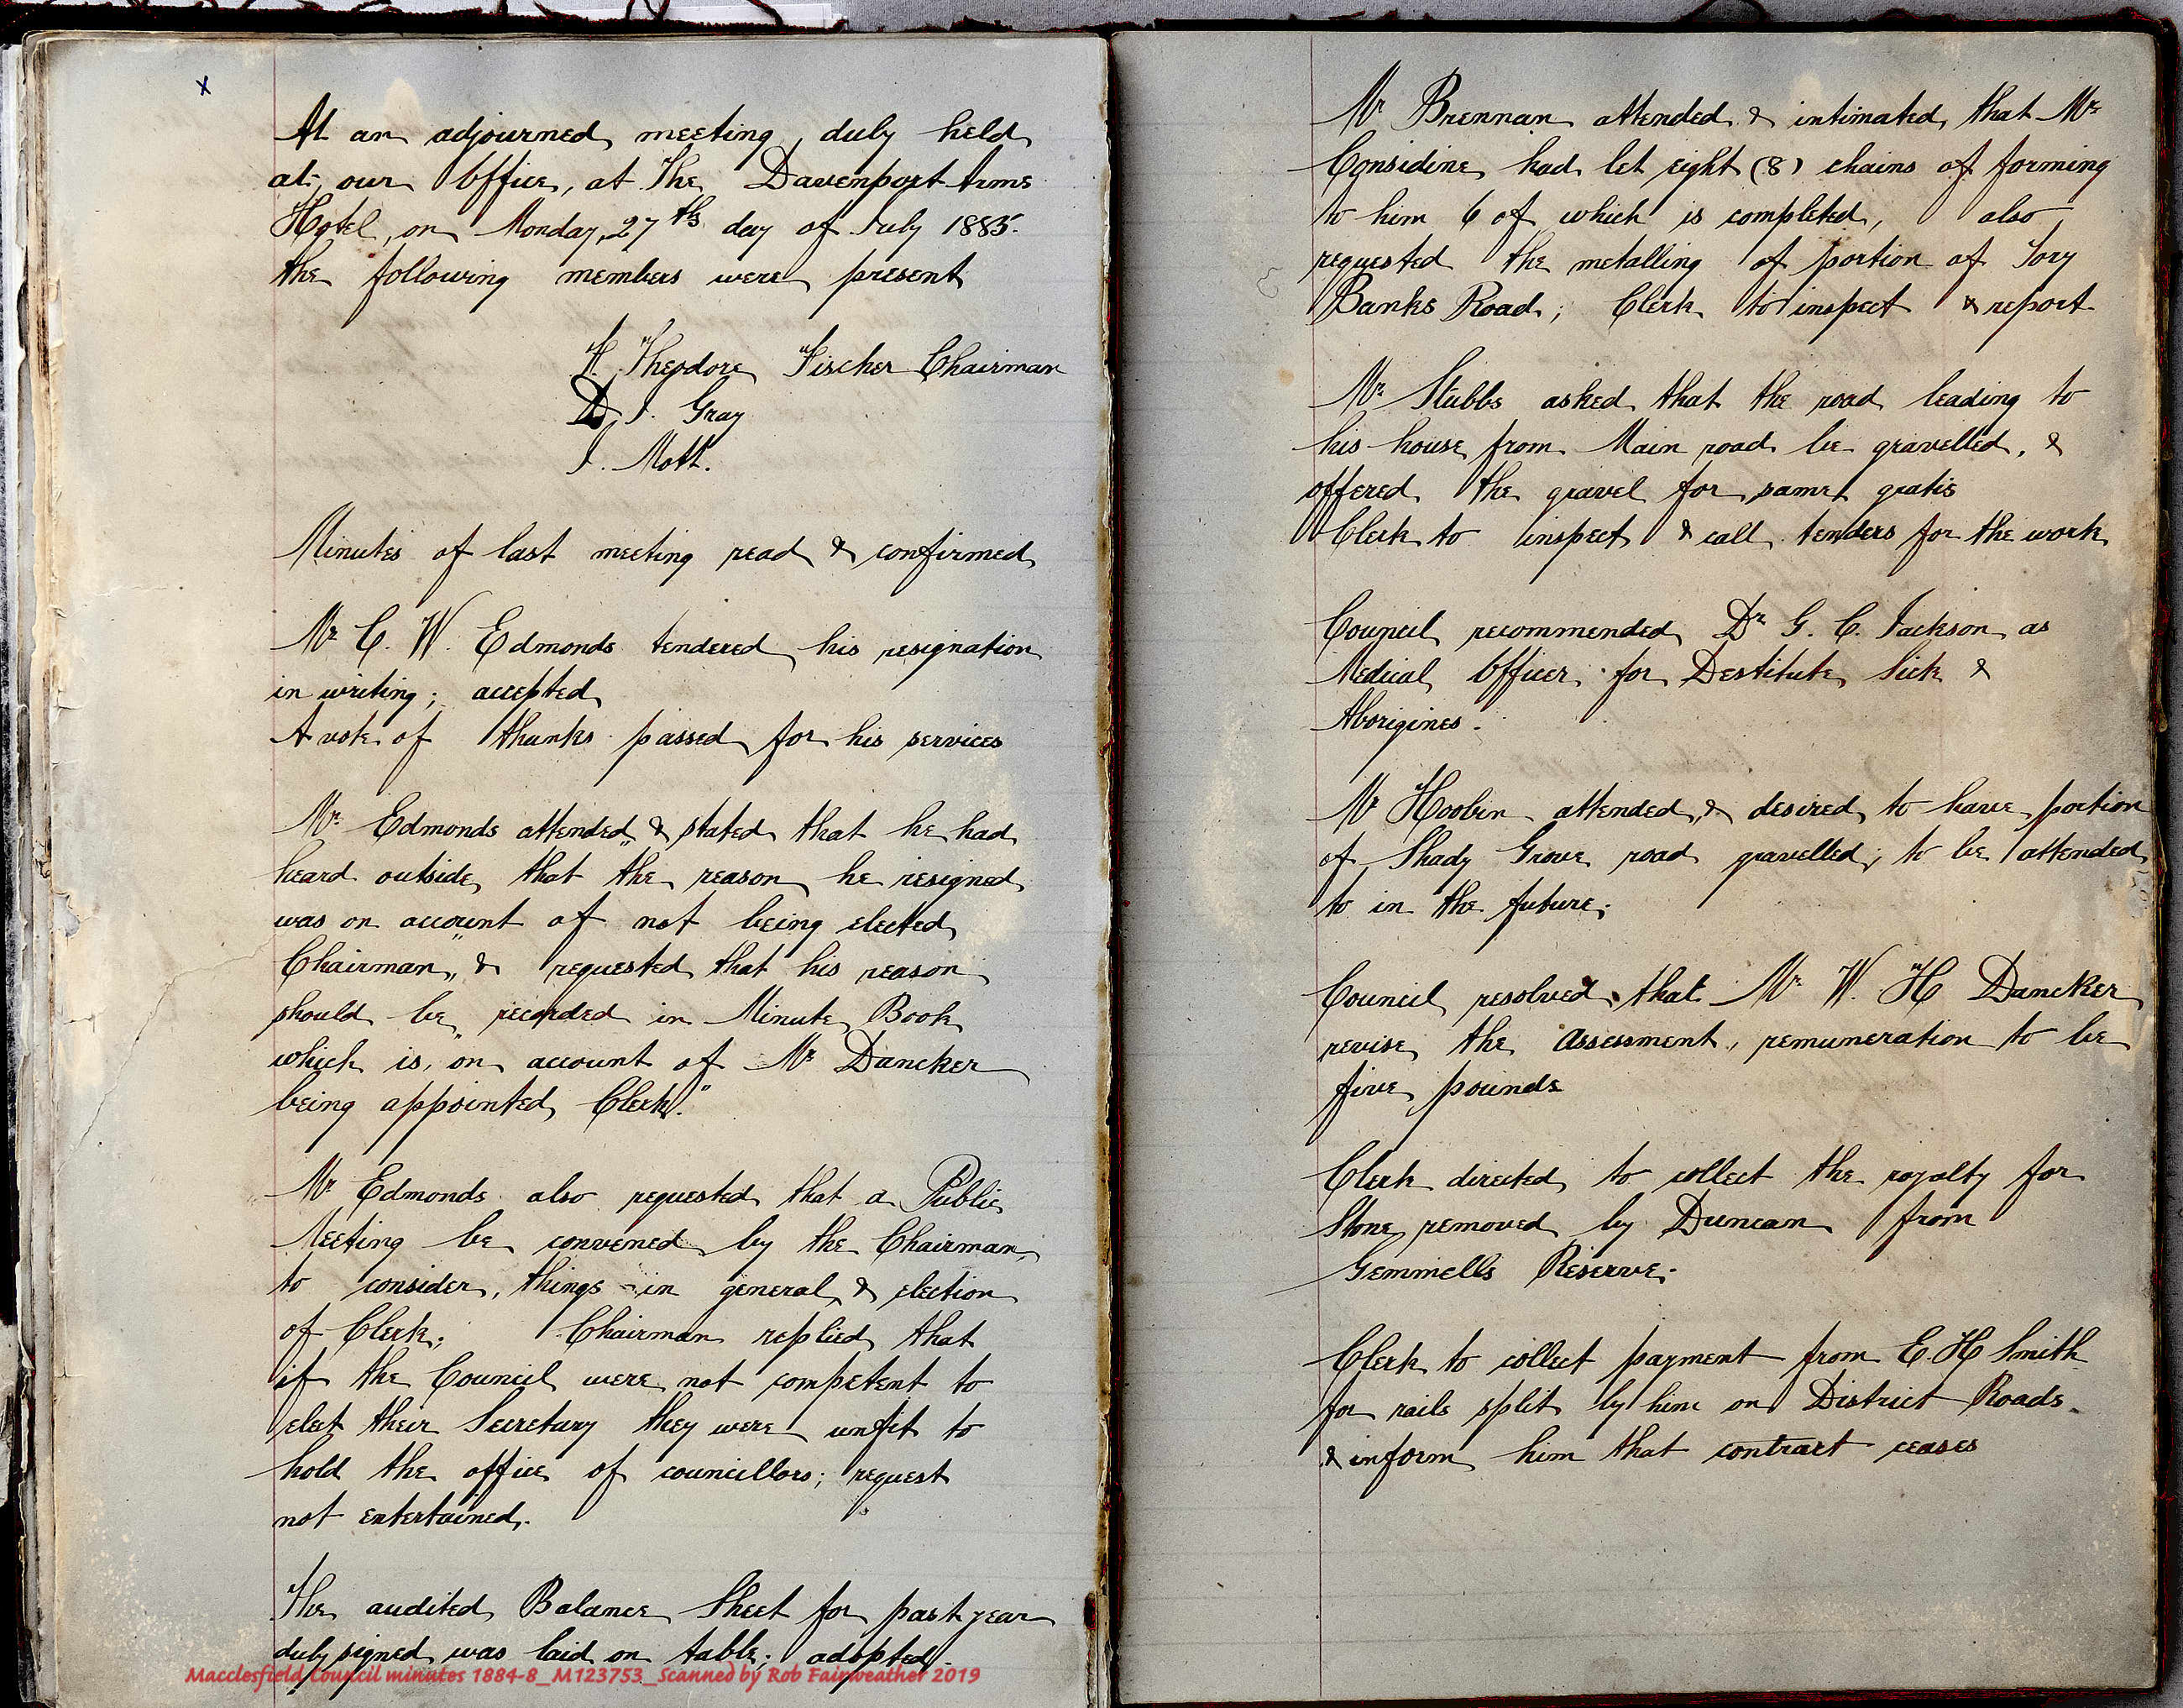 x
At an adjourned meeting, duly held
at our Office, at The Davenport Arms
Hotel, on Monday, 27th day of July 1885.
the following members were present
F. Theodore Fischer Chairman
D J. Gray
J. Mott.
Minutes of last meeting read & confirmed
Mr C. W. Edmonds tendered his resignation
in writing; accepted
A vote of thanks passed for his services
Mr Edmonds attended, & stated that he had
heard outside, that the reason he resigned
was on account of not being elected
Chairman, & requested that his reason
should be "recorded in Minute Book
which is, on account of Mr Dancker
being appointed Clerk."
Mr Edmonds also requested that a Public
Meeting be convened by the Chairman,
to consider, things in general & election
of Clerk; Chairman replied that
if the Council were not competent to
elect their Secretary they were unfit to
hold the office of councillors; request
not entertained.
The audited Balance Sheet for past year
duly signed was laid on table; adopted.
Macclesfield Council minutes 1884-8_M123753_Scanned by Rob Fairweather 2019
Mr Brennan attended & intimated that Mr
Considine had let eight (8) chains of forming
to him 6 of which is completed, also
requested the metalling of portion of Tory
Banks Road; Clerk to inspect & report
Mr Stubbs asked that the road leading to
his house from Main road be gravelled, &
offered the gravel for same gratis
Clerk to inspect & call tenders for the work
Council recommended Dr G. C. Jackson as
Medical Officer for Destitute, Sick &
Aborigines.
Mr Hoobin attended, & desired to have portion
of Shady Grove road gravelled; to be attended
to in the future;
Council resolved that Mr W. H Dancker
revise the Assessment, remuneration to be
five pounds
Clerk directed to collect the royalty for
Stone removed by Duncan from
Gemmells Reserve.
Clerk to collect payment from E. H Smith
for rails split by him on District Roads.
& inform him that contract ceases